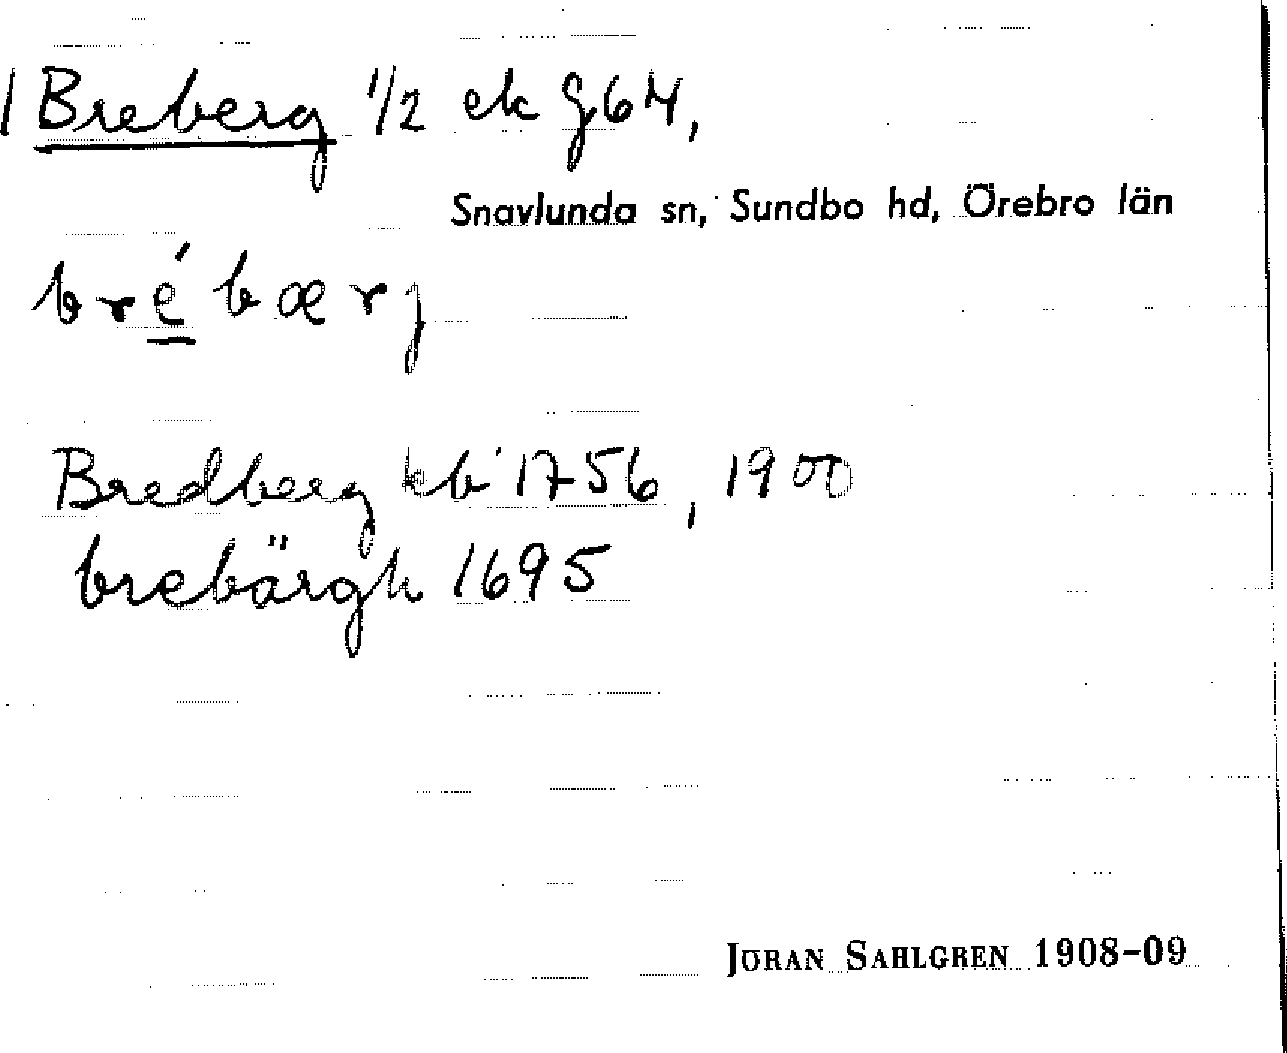 Breberg 1/2 ek J64,
Snavlunda sn, Sundbo hd, Örebro län
bré̲bærj
Bredberg kb 1756, 1900
brebärgh 1695
JÖRAN SAHLGREN 1908-09